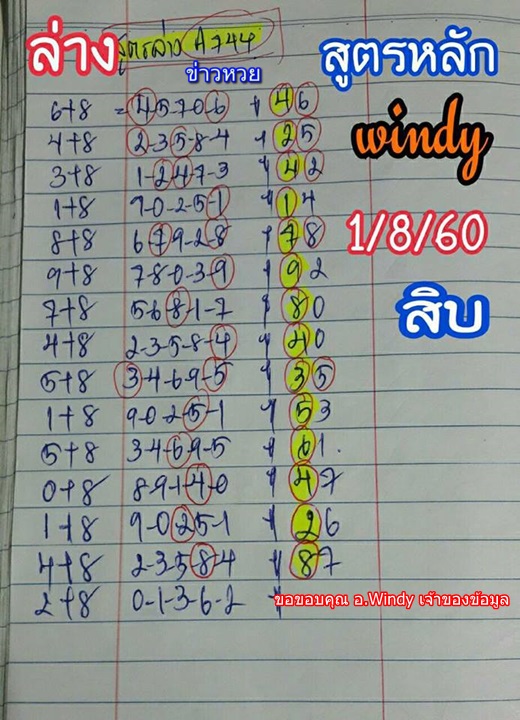 ล่าง สูตรล่าง A744 สูตรหลัก
ข่าวหวย
6+8 = 4-5-7-0-6 + 46
windy
4+8 2-3-5-8-4 + 25
3+8 1-2-4-7-3 + 42
1+8 9-0-2-5-1 + 14
8+8 6-7-9-2-8 + 78
1/8/60
9+8 7-8-0-3-9 + 92
7+8 5-6-8-1-7 + 80
สิบ
4+8 2-3-5-8-4 + 40
5+8 3-4-6-9-5 + 35
1+8 9-0-2-5-1 + 53
5+8 3-4-6-9-5 + 61.
0+8 8-9-1-4-0 + 47
1+8 9-0-2-5-1 + 26
4+8 2-3-5-8-4 + 87
2+8 0-1-3-6-2 +
ขอขอบคุณ อ.Windy เจ้าของข้อมูล